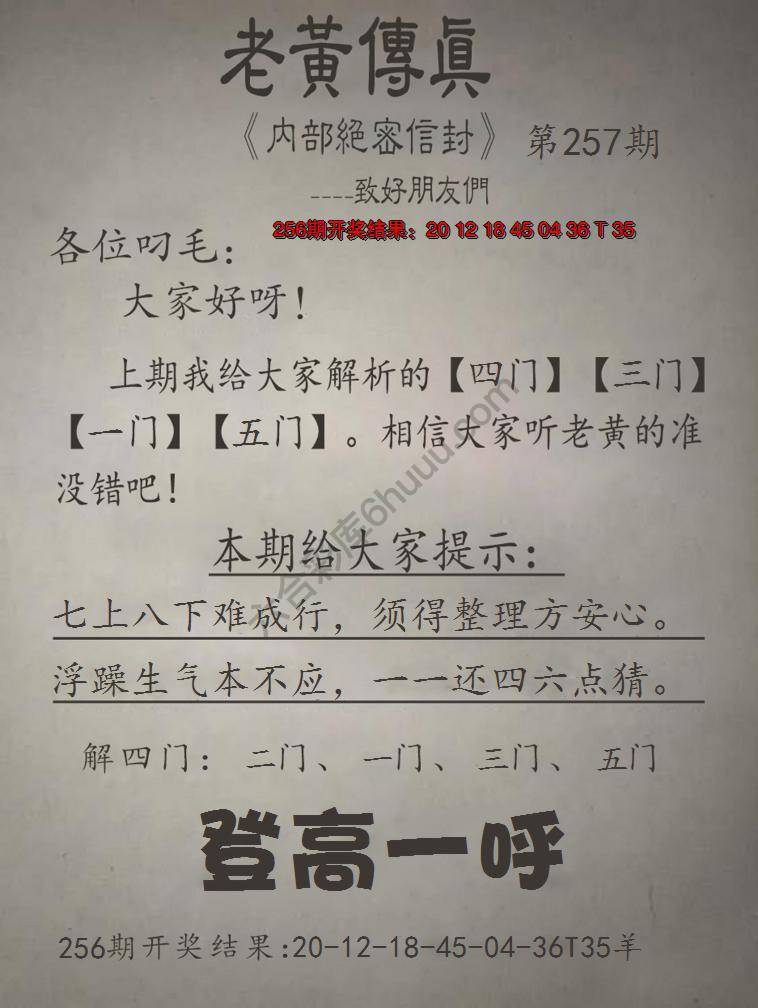 老黃傳眞
《内部絕密信封》 第257期
----致好朋友們
256期开奖结果：20 12 18 45 04 36 T 35
各位叼毛：
大家好呀！
上期我给大家解析的【四门】【三门】
【一门】【五门】。相信大家听老黄的准
没错吧！
本期给大家提示：
七上八下难成行，须得整理方安心。
浮躁生气本不应，一一还四六点猜。
解四门： 二门、 一门、 三门、 五门
登高一呼
256期开奖结果:20-12-18-45-04-36T35羊
六合彩库6huuu.com